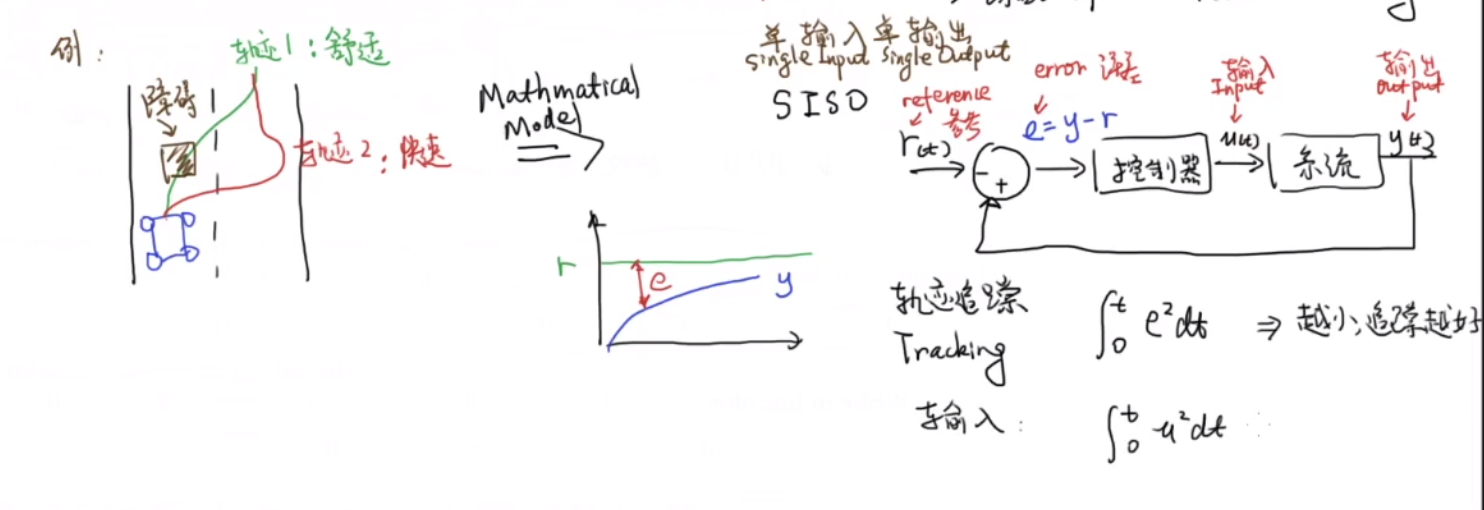 例：
轨迹1：舒适
障碍
轨迹2：快速
Mathmatical
Model
r
e
y
单输入单输出
Single Input Single Output
SISO
reference
参考
r(t)
error 误差
e=y-r
输入
Input
u(t)
输出
output
y(t)
-
+
控制器
系统
轨迹追踪
Tracking
∫₀ᵗ e²dt ⇒ 越小,追踪越好
输入：
∫₀ᵗ u²dt